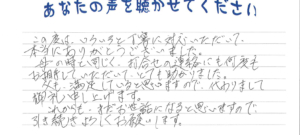 あなたの声を聴かせてください
この度は、いろいろと丁寧に対応いただいて、
本当にありがとうございました。
母の時と同じく、打合せの連絡にも何度も
お越しいただいて、とても助かりました。
父も満足していると思いますので、代わりまして
御礼申し上げます。
これからも、まだお世話になると思いますので、
引き続きよろしくお願いします。